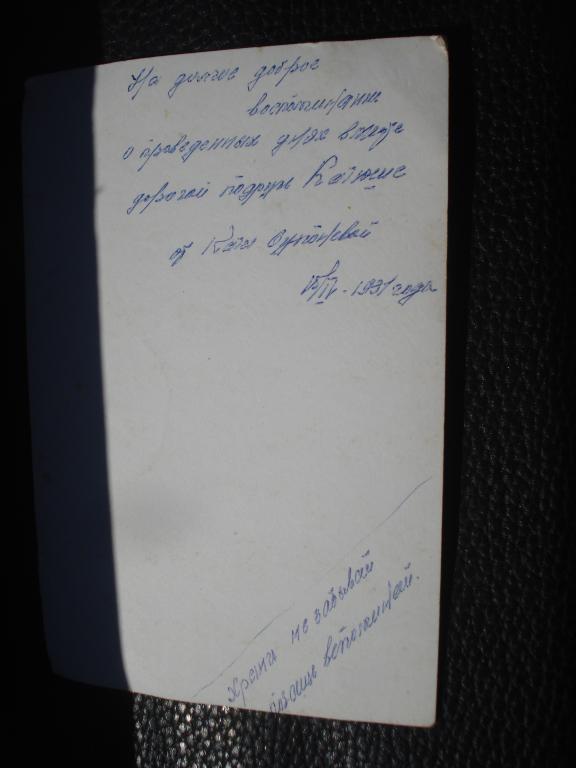 На долгое доброе
воспоминание
о проведенных днях вместе
дорогой подруге Катюше
от Кати
15/IV - 1991 года
Храни не забывай
вспоминай.